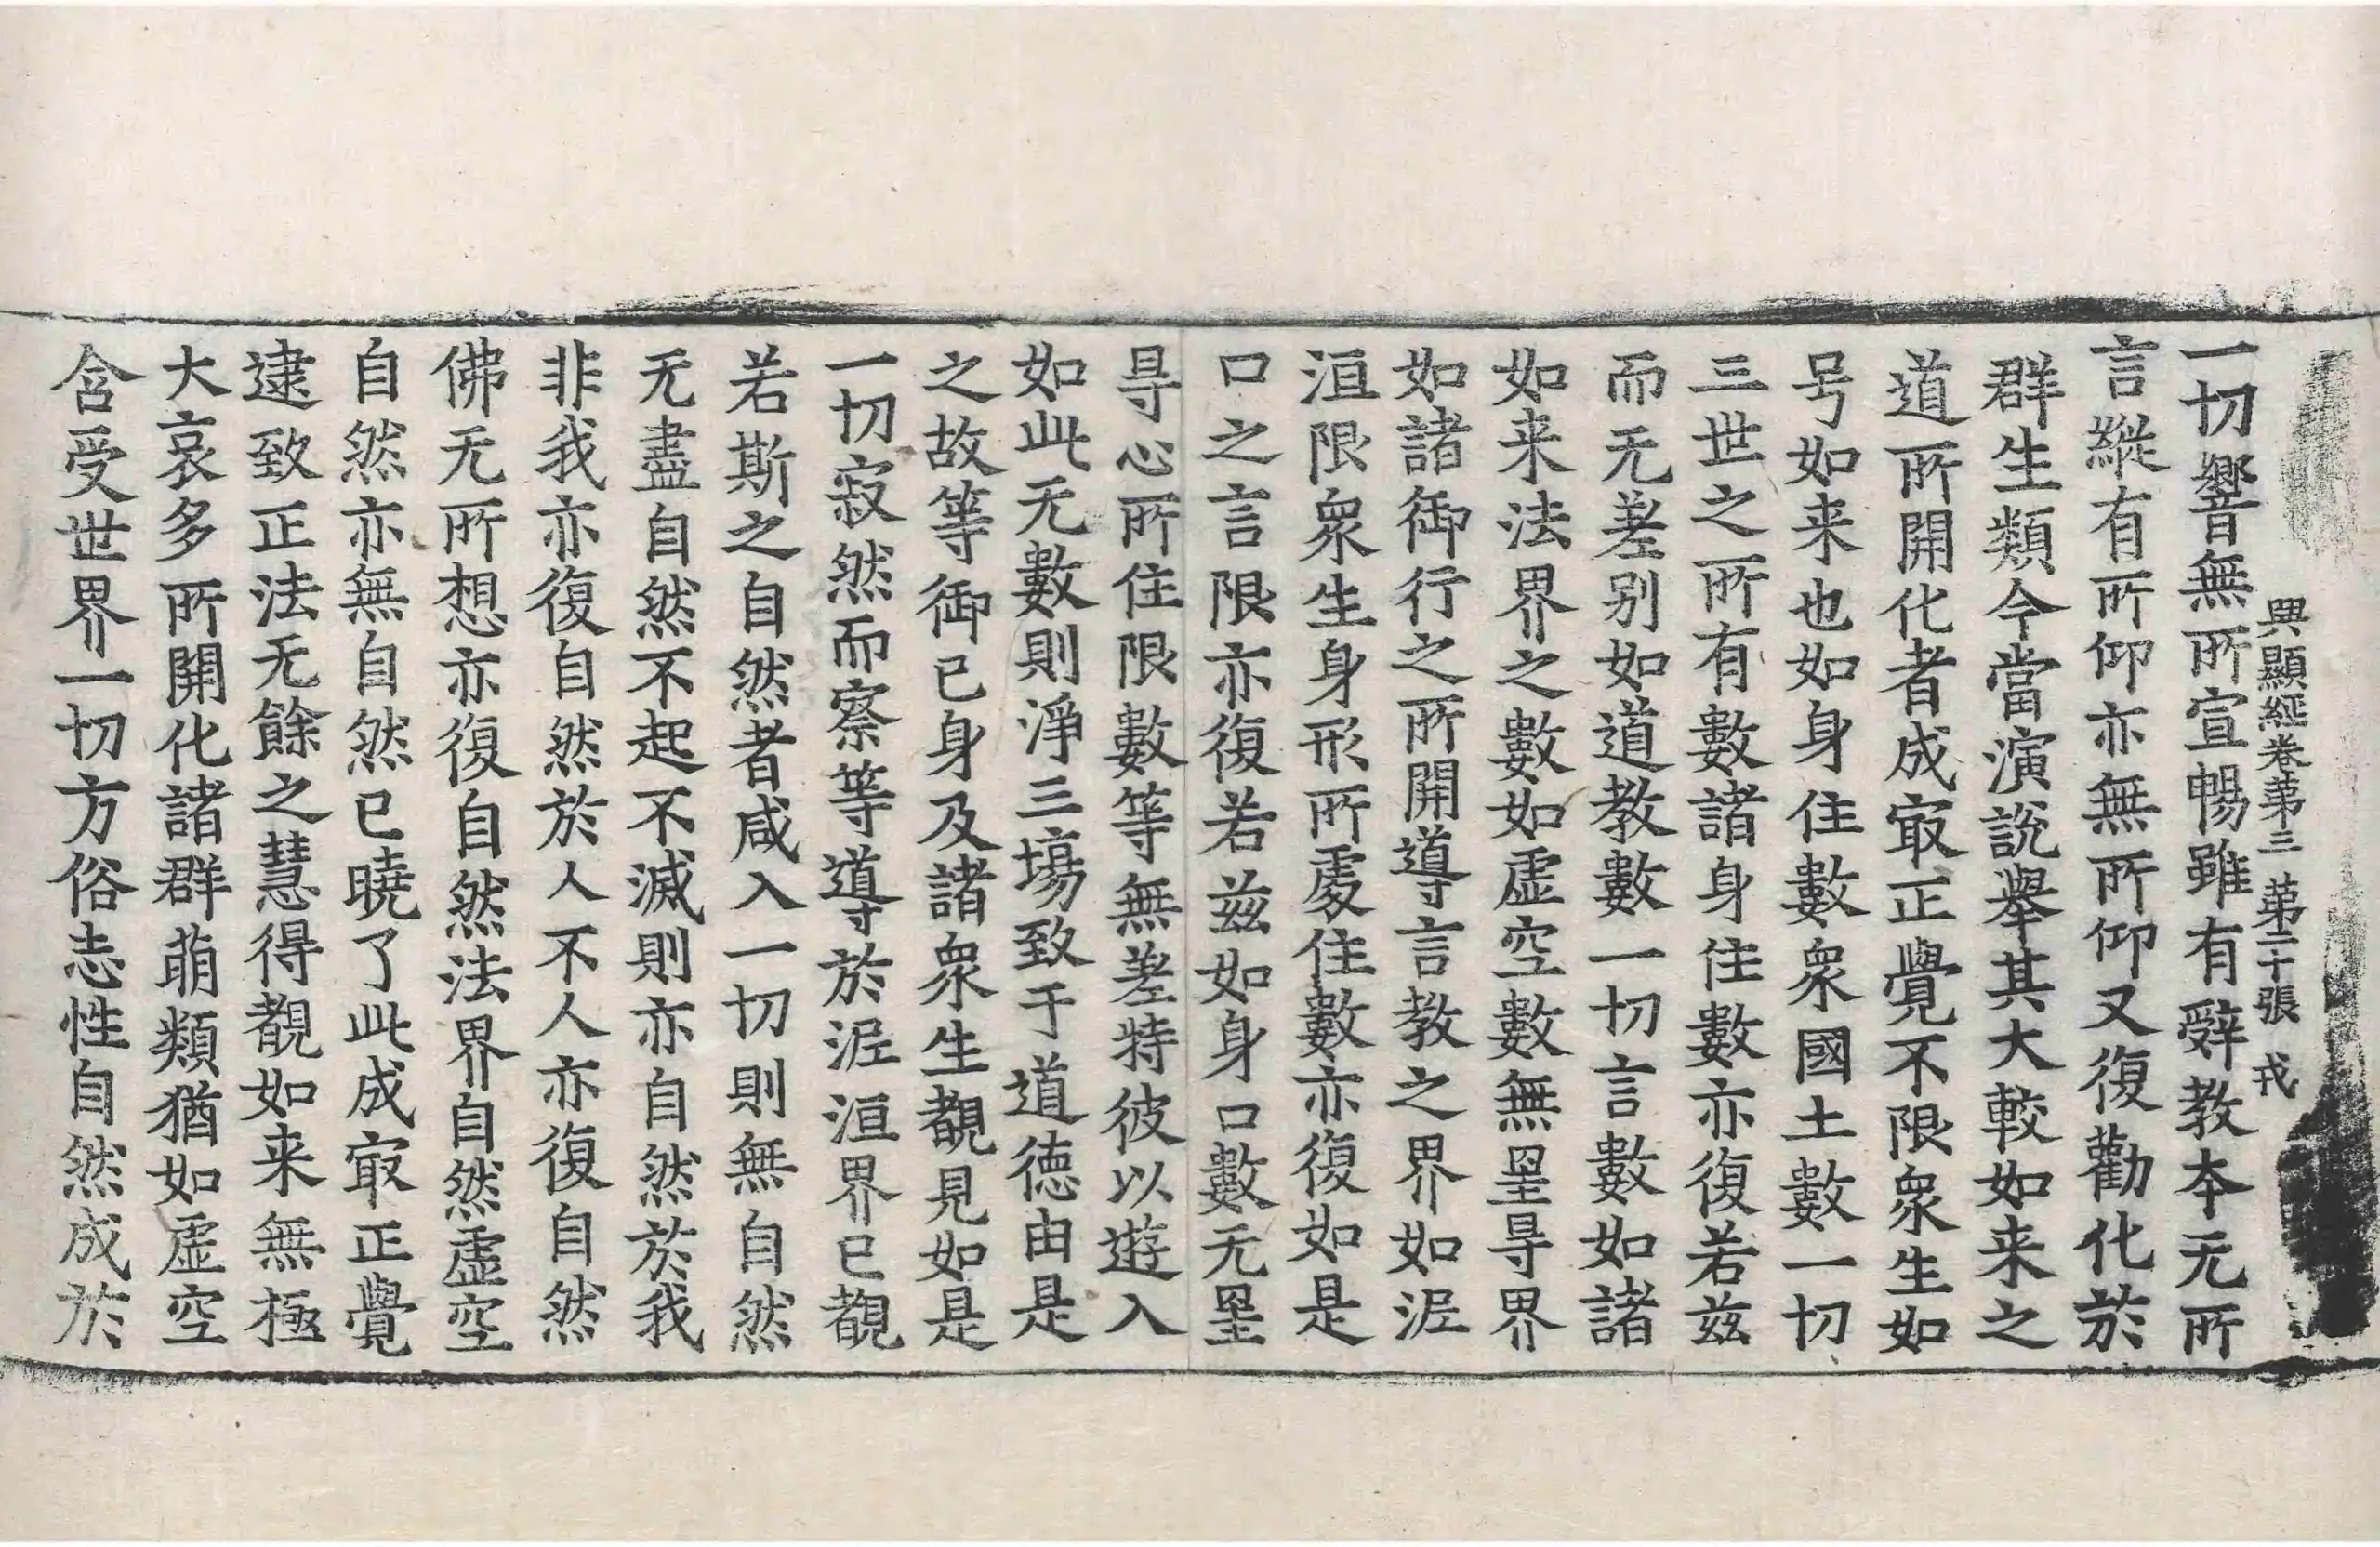 興顯經卷第三 第二十張 戎
一切響音無所宣暢雖有辭教本无所
言縱有所仰亦無所仰又復勸化於
群生類今當演說舉其大較如来之
道所開化者成㝡正覺不限衆生如
号如来也如身住數衆國土數一切
三世之所有數諸身住數亦復若兹
而无差别如道教數一切言數如諸
如来法界之數如虛空數無罣㝵界
如諸御行之所開導言教之界如泥
洹限衆生身形所處住數亦復如是
口之言限亦復若兹如身口數无罣
㝵心所住限數等無差特彼以遊入
如此无數則淨三場致于道德由是
之故等御已身及諸衆生覩見如是
一切寂然而察等導於泥洹界已覩
若斯之自然者咸入一切則無自然
无盡自然不起不滅則亦自然於我
非我亦復自然於人不人亦復自然
佛无所想亦復自然法界自然虛空
自然亦無自然已曉了此成㝡正覺
逮致正法无餘之慧得覩如来無極
大哀多所開化諸群萌類猶如虛空
含受世界一切方俗志性自然成於